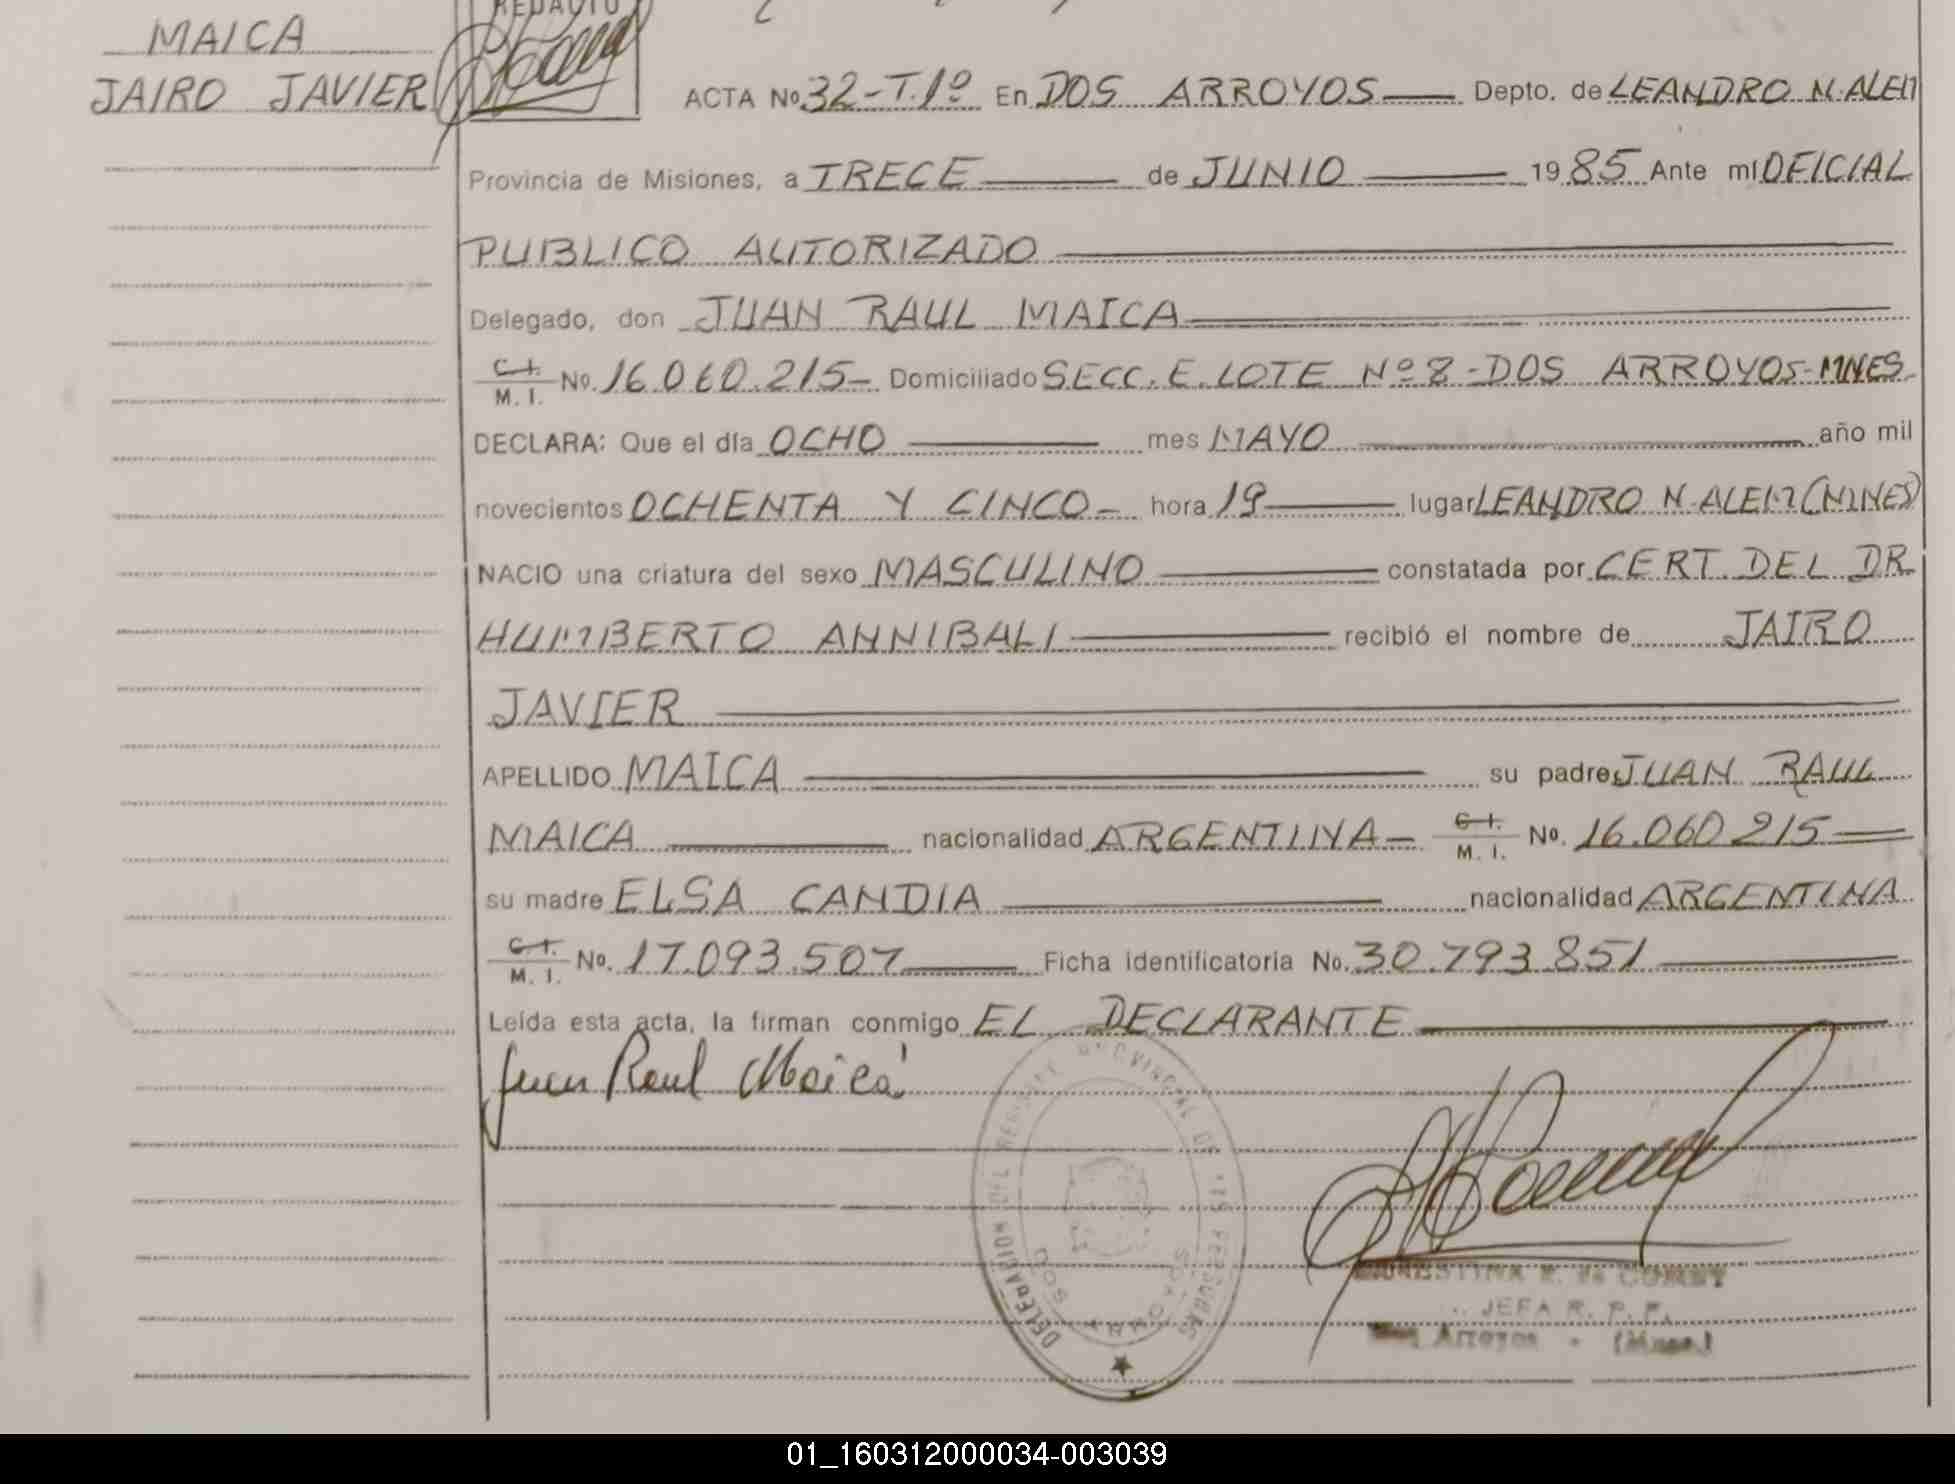 MAICA
JAIRO JAVIER
REDACTO
ACTA No 32-T.1º En DOS ARROYOS Depto. de LEANDRO N. ALEM
Provincia de Misiones, a TRECE de JUNIO 1985 Ante mí OFICIAL
PUBLICO AUTORIZADO
Delegado, don JUAN RAUL MAICA
C.I. M. I. No. 16.060.215- Domiciliado SECC. E. LOTE Nº 8 - DOS ARROYOS-MNES
DECLARA: Que el día OCHO mes MAYO año mil
novecientos OCHENTA Y CINCO - hora 19 lugar LEANDRO N. ALEM (MNES)
NACIO una criatura del sexo MASCULINO constatada por CERT. DEL DR
HUMBERTO ANNIBALI recibió el nombre de JAIRO
JAVIER
APELLIDO MAICA su padre JUAN RAUL
MAICA nacionalidad ARGENTINA - C.I. M. I. No. 16.060.215
su madre ELSA CANDIA nacionalidad ARGENTINA
C.I. M. I. No. 17.093.507 Ficha identificatoria No. 30.793.851
Leída esta acta, la firman conmigo EL DECLARANTE
Juan Raul Maica
DELEGACION DEL REGISTRO PROVINCIAL DE LAS PERSONAS
DOS ARROYOS
E. de COMBY
JEFA R. P. P.
Dos Arroyos - (Mnes.)
01_160312000034-003039